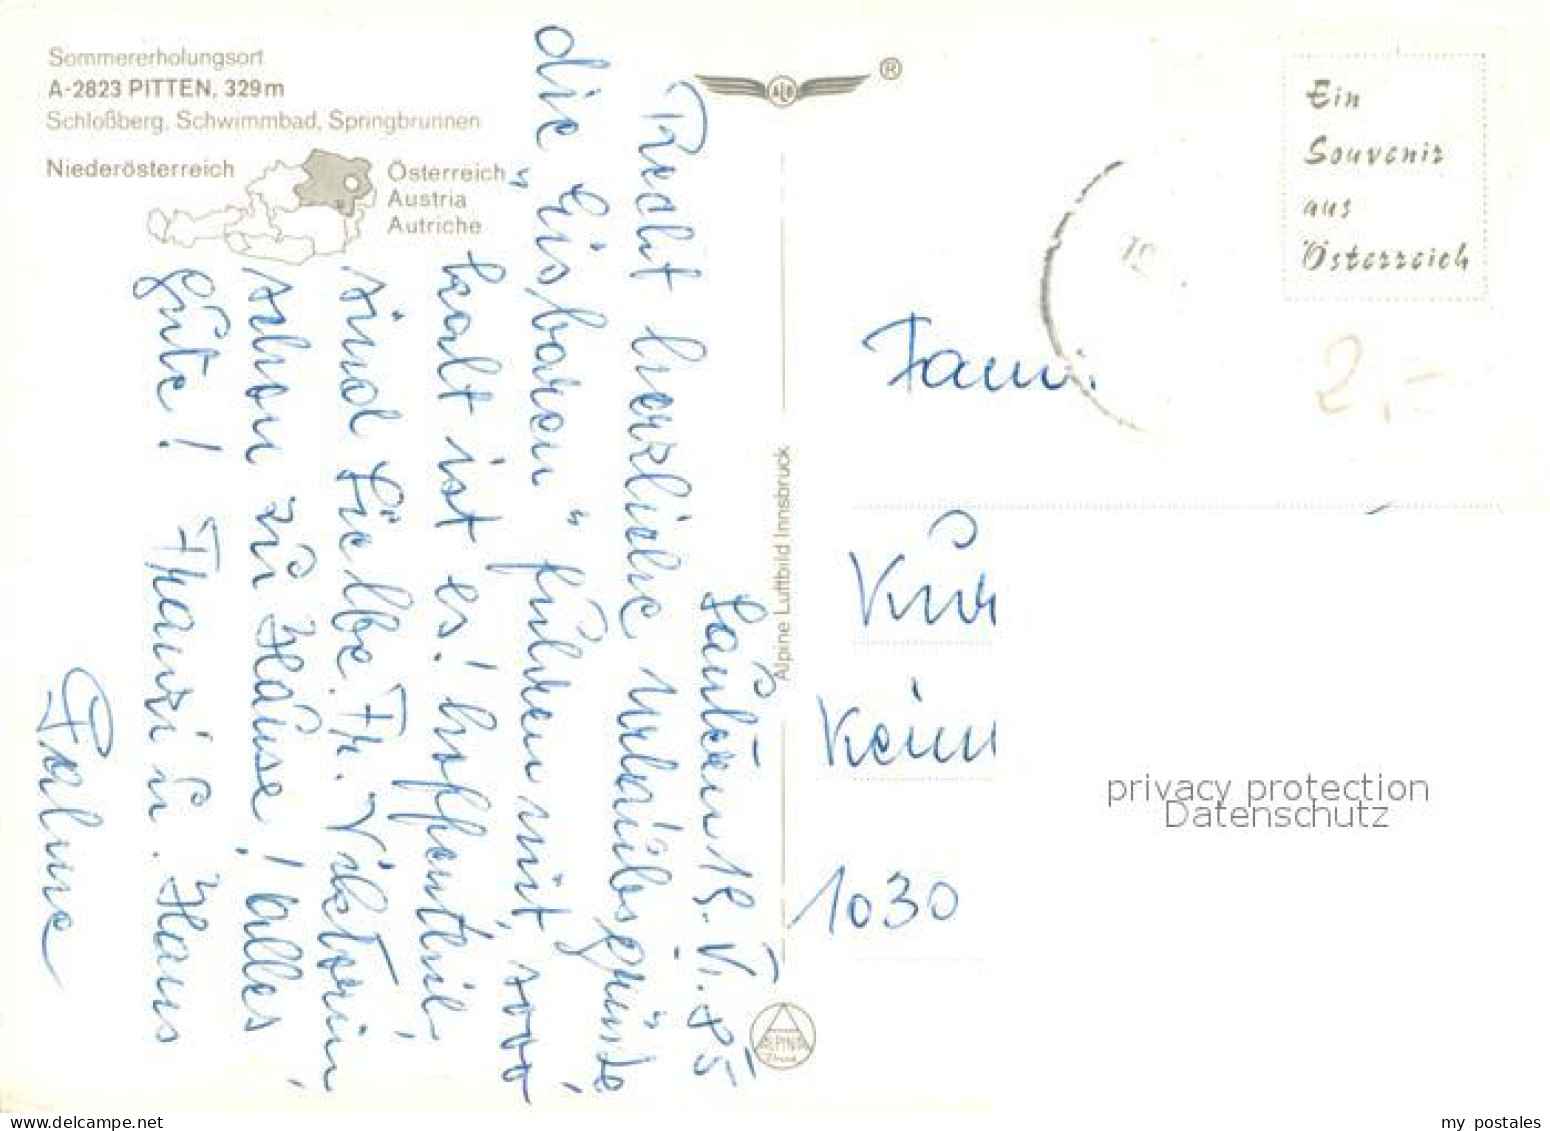 Sommererholungsort
A-2823 PITTEN, 329m
Schloßberg, Schwimmbad, Springbrunnen
Niederösterreich
Österreich
Austria
Autriche
ALB
®
Ein
Souvenir
aus
Österreich
2,-
Alpine Luftbild Innsbruck
13. VI. 85
Recht herzliche Urlaubsgrüße
die "Eisbären" führen mit, sooo
kalt ist es! hoffentlich
sind Sie lbe. Fr. Viktorin
schon zu Hause! alles
Gute! Franzi u. Hans
Fam.
Kur
Kein
1030
ALPINA
privacy protection
Datenschutz
my postales